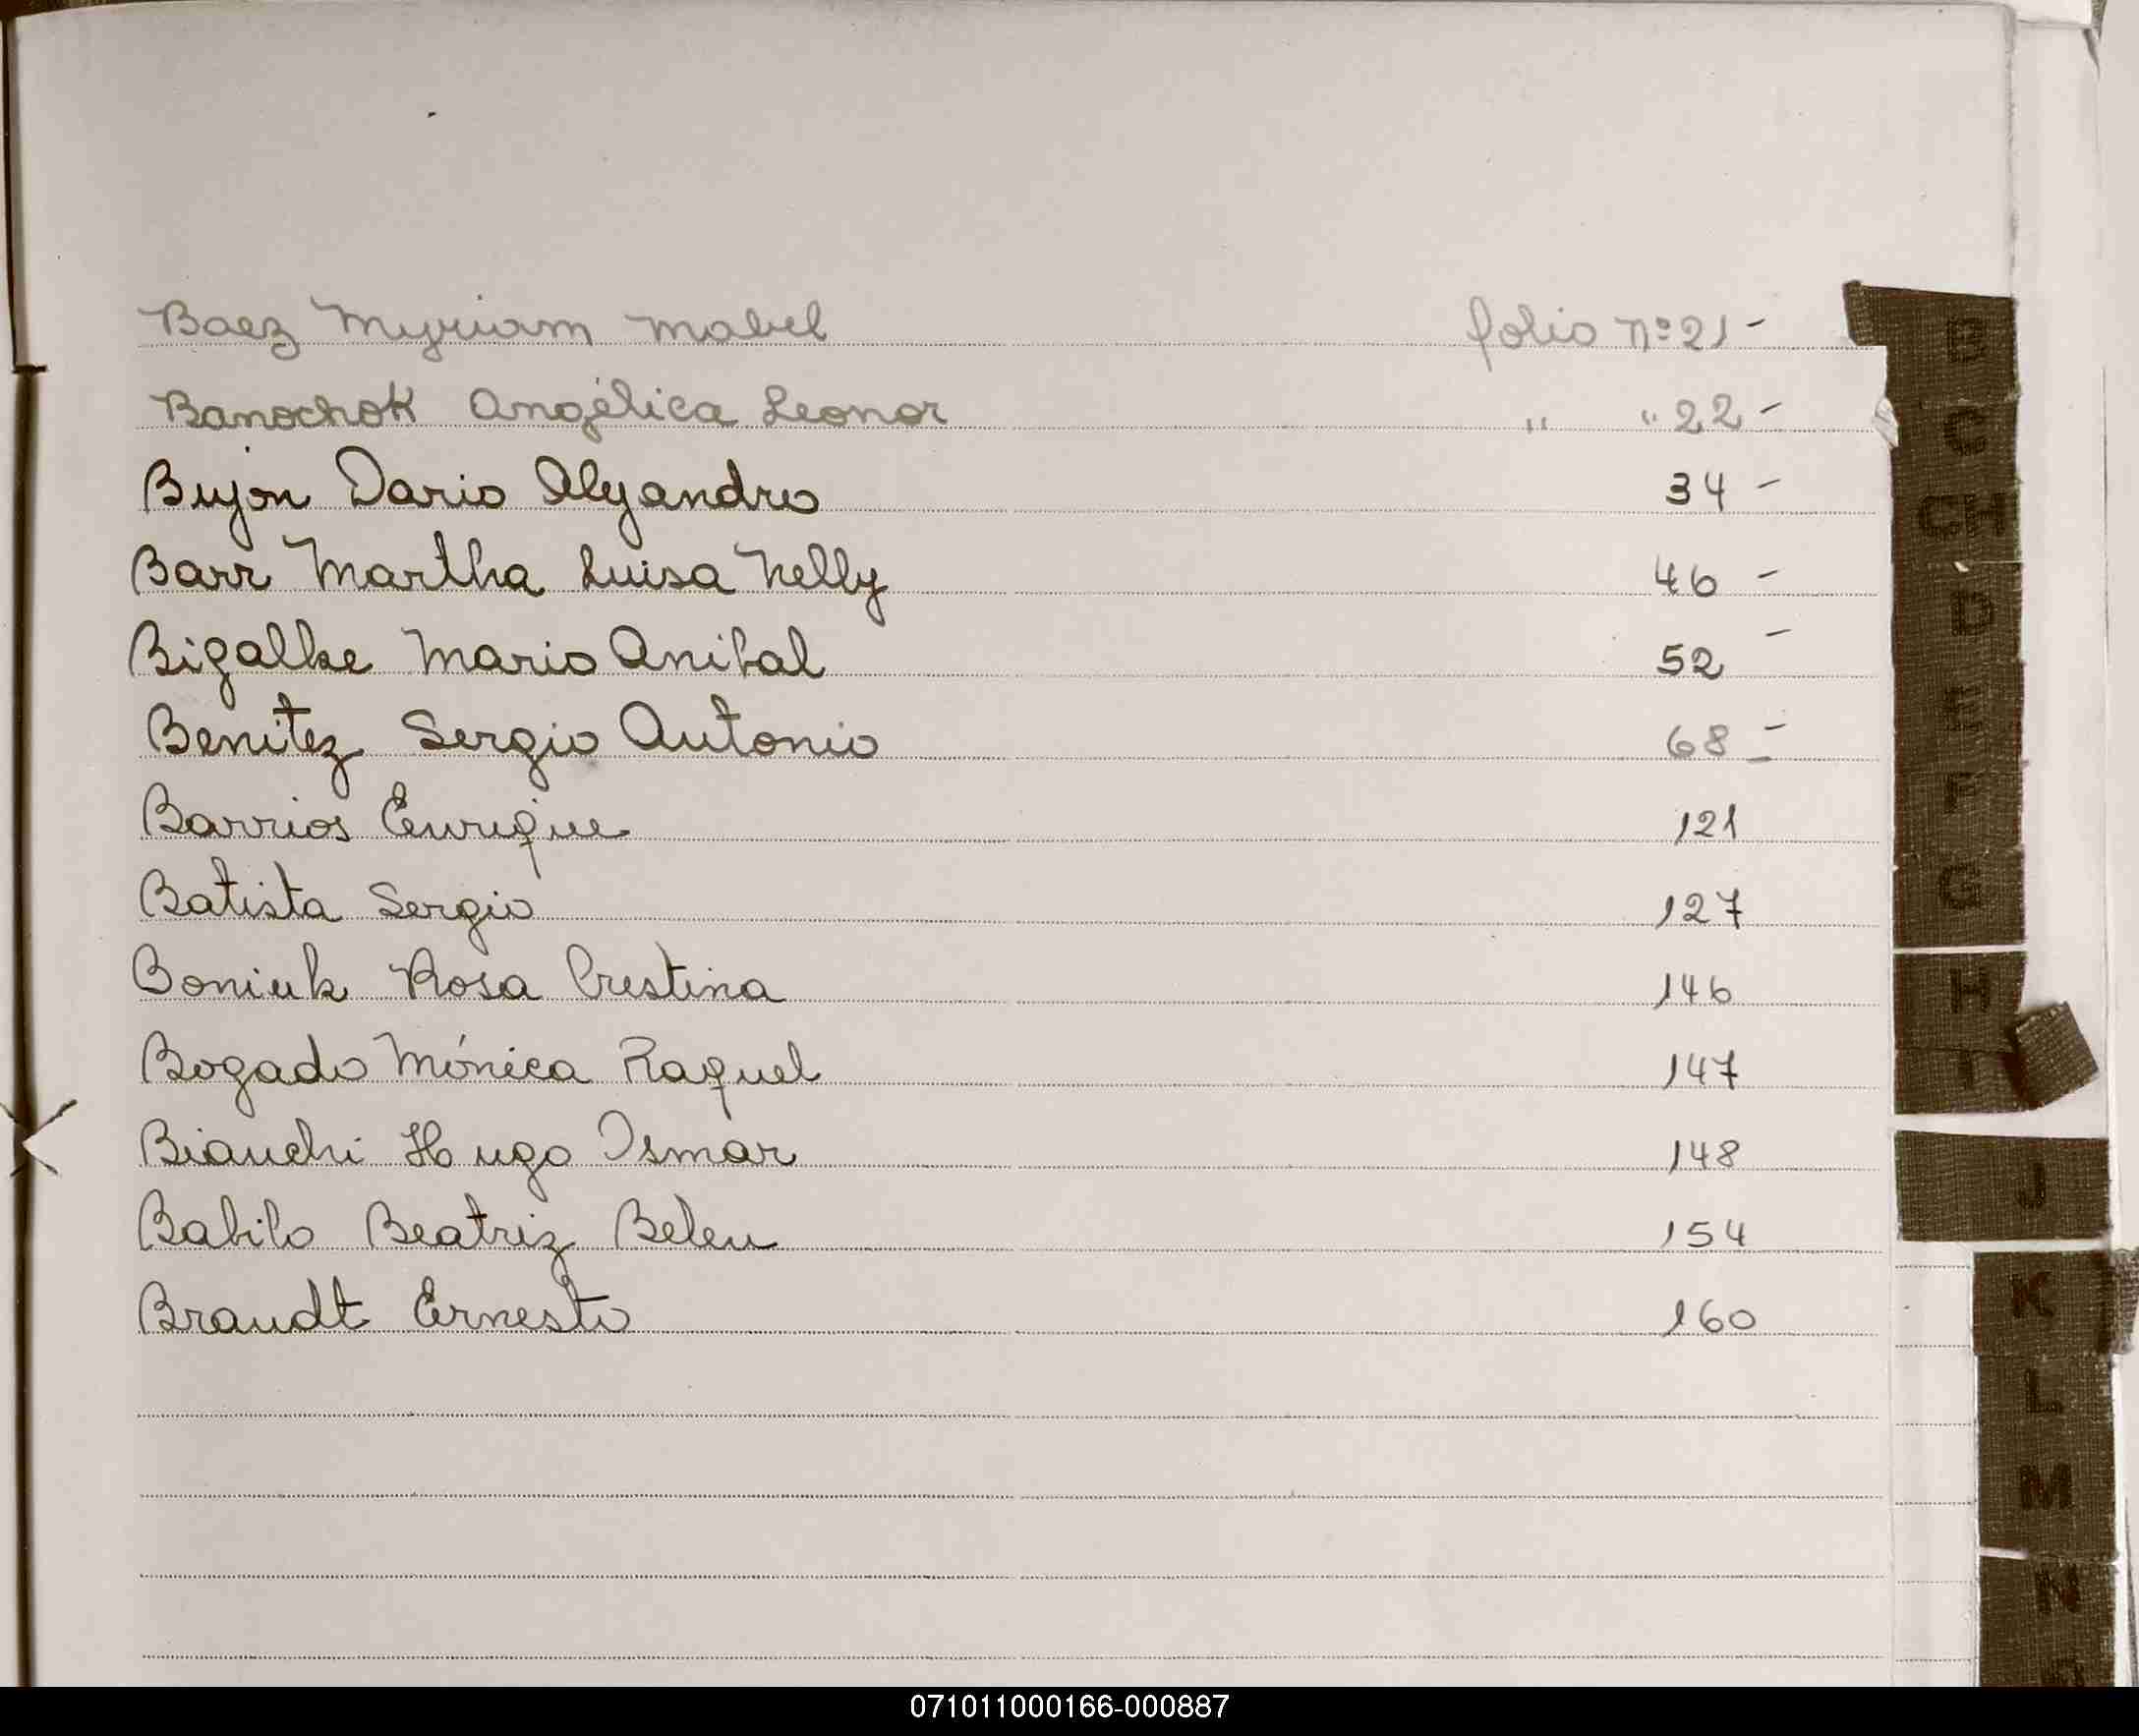 Baez Myriam Mabel folio nº 21 -
Banochok Angélica Leonor " " 22 -
Bujon Dario Alejandro 34 -
Barr Martha Luisa Nelly 46 -
Bigalke Mario Anibal 52 -
Benitez Sergio Antonio 68 -
Barrios Enrique 121
Batista Sergio 127
Boniuk Rosa Crestina 146
Bogado Mónica Raquel 147
Bianchi Hugo Ismar 148
Babilo Beatriz Belen 154
Brandt Ernesto 160
B
C
CH
D
E
F
G
H
I
J
K
L
M
N
071011000166-000887